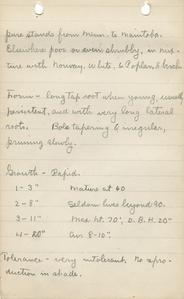 pure stands from Minn. to Manitoba.
Elsewhere poor or even shrubby, in mix-
ture with Norway, White, & Poplar & birch
Form - long tap root when young, usually
persistent, and with very long lateral
roots. Bole tapering & irregular,
pruning slowly.
Growth - Rapid.
1 - 3" Mature at 60
2 - 8" Seldom live beyond 90.
3 - 11" Max ht. 70', D.B.H. 20"
4 - 20" Av. 8-10".
Tolerance - very intolerant no repro-
duction in shade.